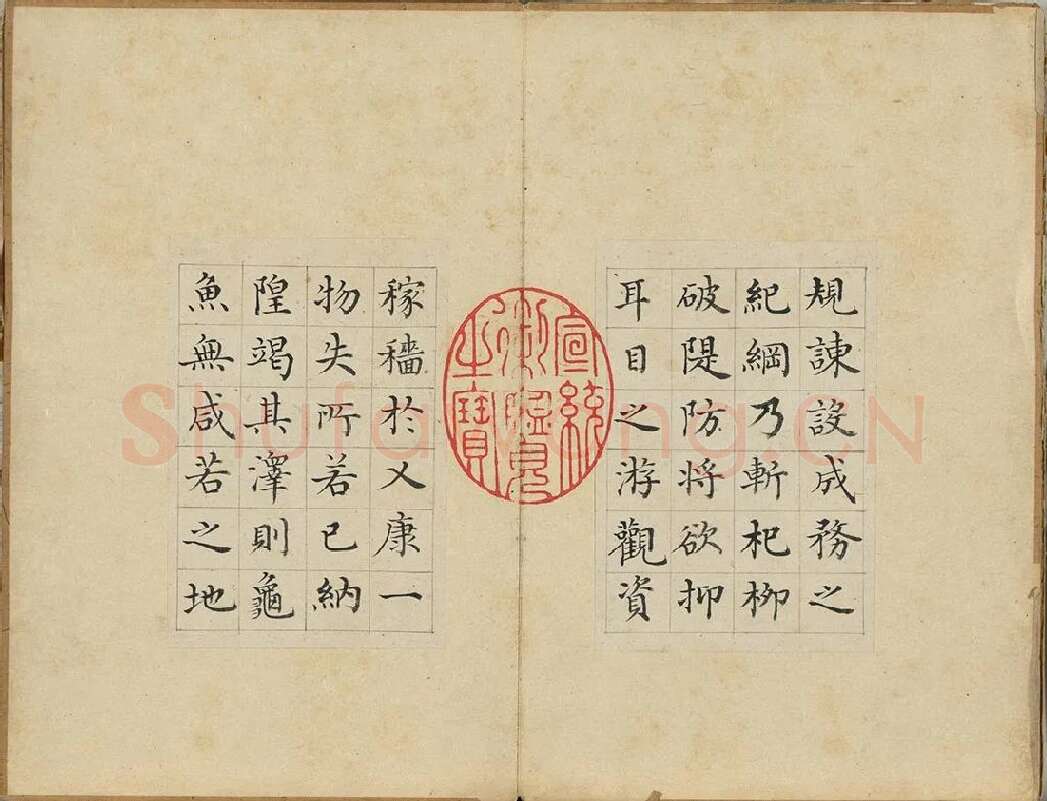 規諫設成務之
紀綱乃斬杞柳
破隄防将欲抑
耳目之游觀資
稼穡於乂康一
物失所若已納
隍竭其澤則龜
魚無咸若之地
宣統御覽之寶
Shufawang.CN